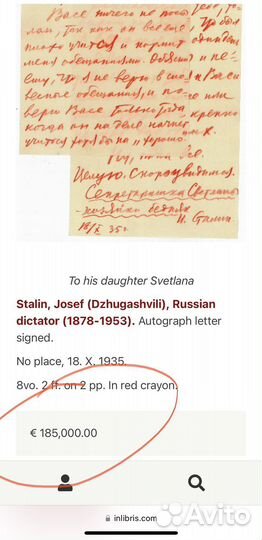 Васе ничего не
лай, так как он все еще
плохо учится и кормит
меня обещаниями.
ему, что я не верю в
обещания, и
верю Васе только тогда,
когда он на деле начнет
учиться хотя бы на "хорошо".
Целую. Скоро увидимся.
Секретаришка Светланы
-хозяйки бедняк
И. Сталин.
18/X 35 г.
To his daughter Svetlana
Stalin, Josef (Dzhugashvili), Russian
dictator (1878-1953). Autograph letter
signed.
No place, 18. X. 1935.
8vo. 2 ff. on 2 pp. In red crayon.
€ 185,000.00
inlibris.com
Avito